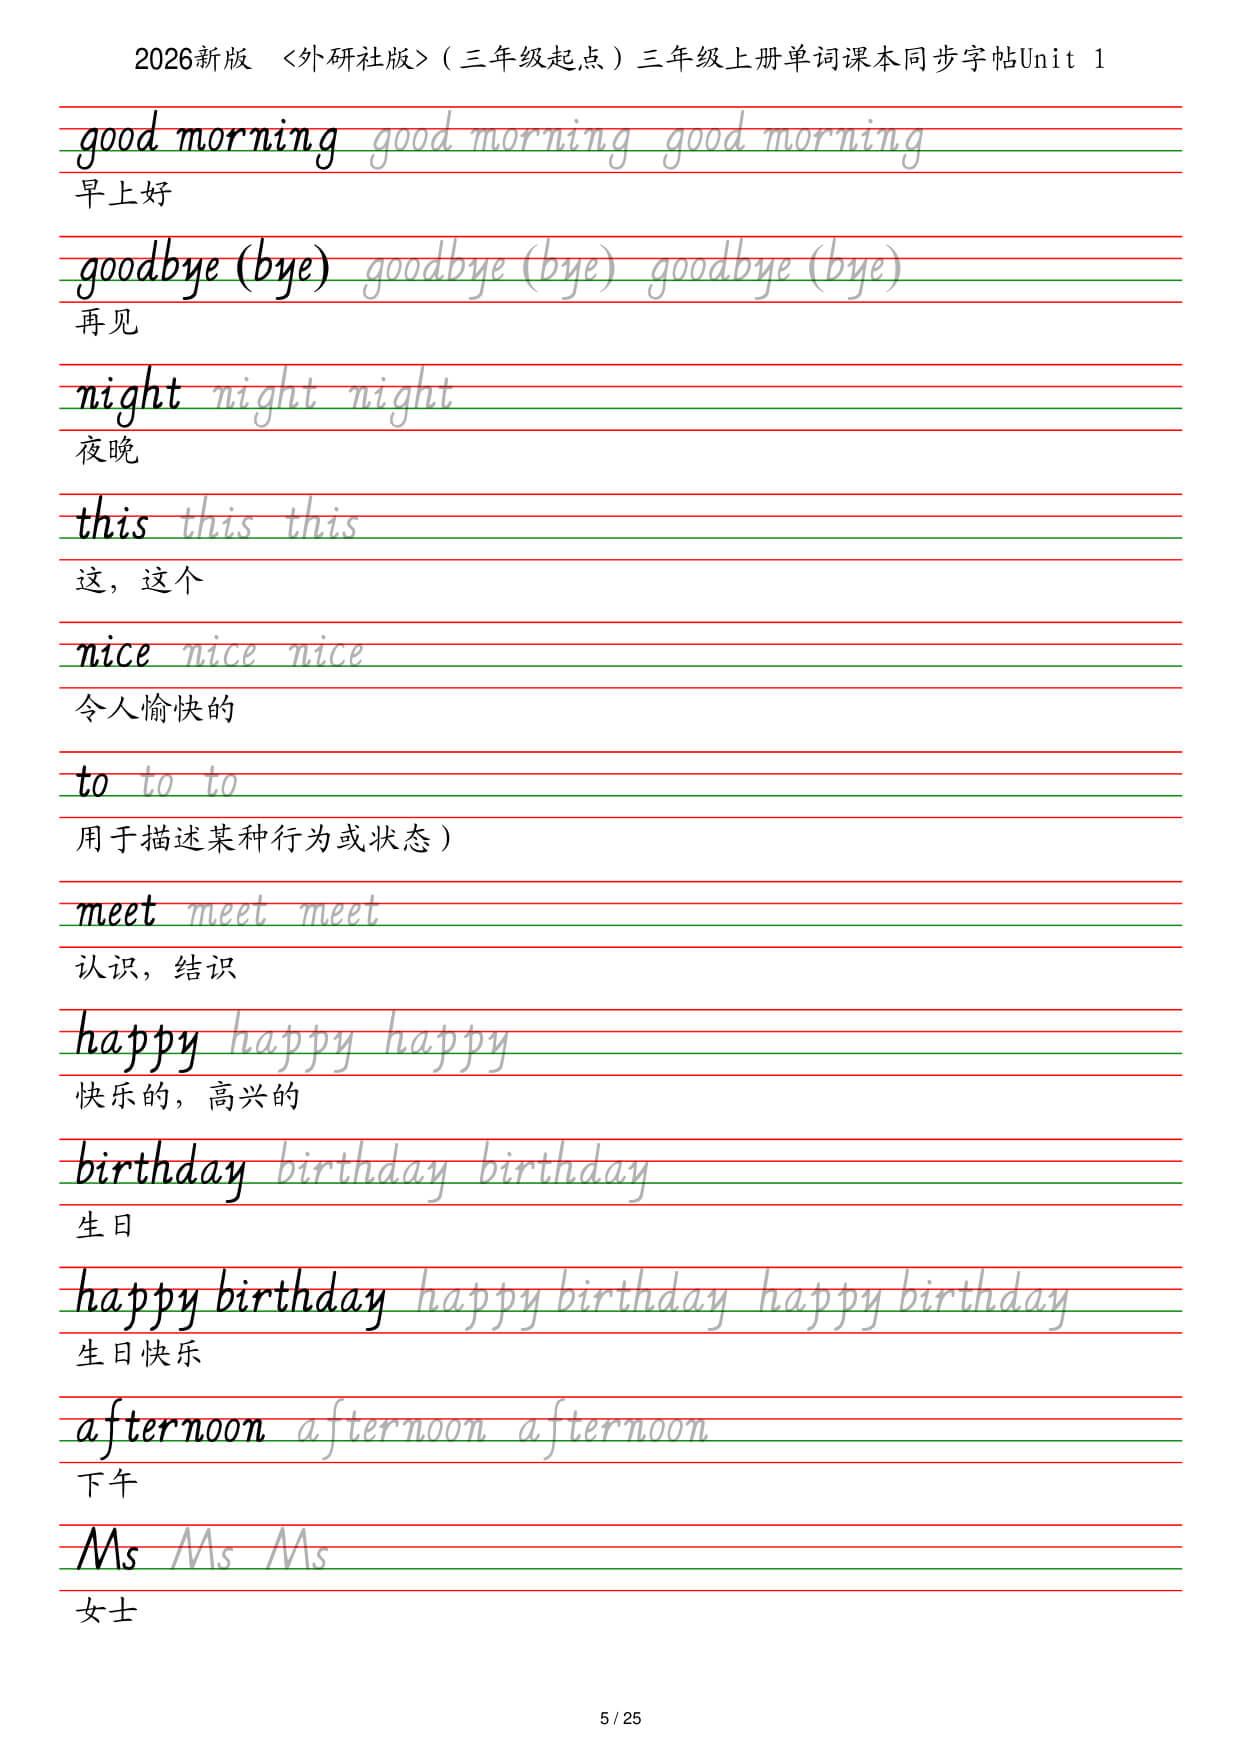 2026新版 <外研社版>（三年级起点）三年级上册单词课本同步字帖Unit 1
good morning good morning good morning
早上好
goodbye (bye) goodbye (bye) goodbye (bye)
再见
night night night
夜晚
this this this
这，这个
nice nice nice
令人愉快的
to to to
用于描述某种行为或状态）
meet meet meet
认识，结识
happy happy happy
快乐的，高兴的
birthday birthday birthday
生日
happy birthday happy birthday happy birthday
生日快乐
afternoon afternoon afternoon
下午
Ms Ms Ms
女士
5 / 25